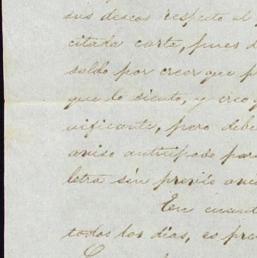 sus deseos respecto al
citada carta, pues
saldo por creer que
que lo siento, y creo
nificante, pero debe
aviso anticipado para
letra sin previo
En cuan
todos los días, es pre